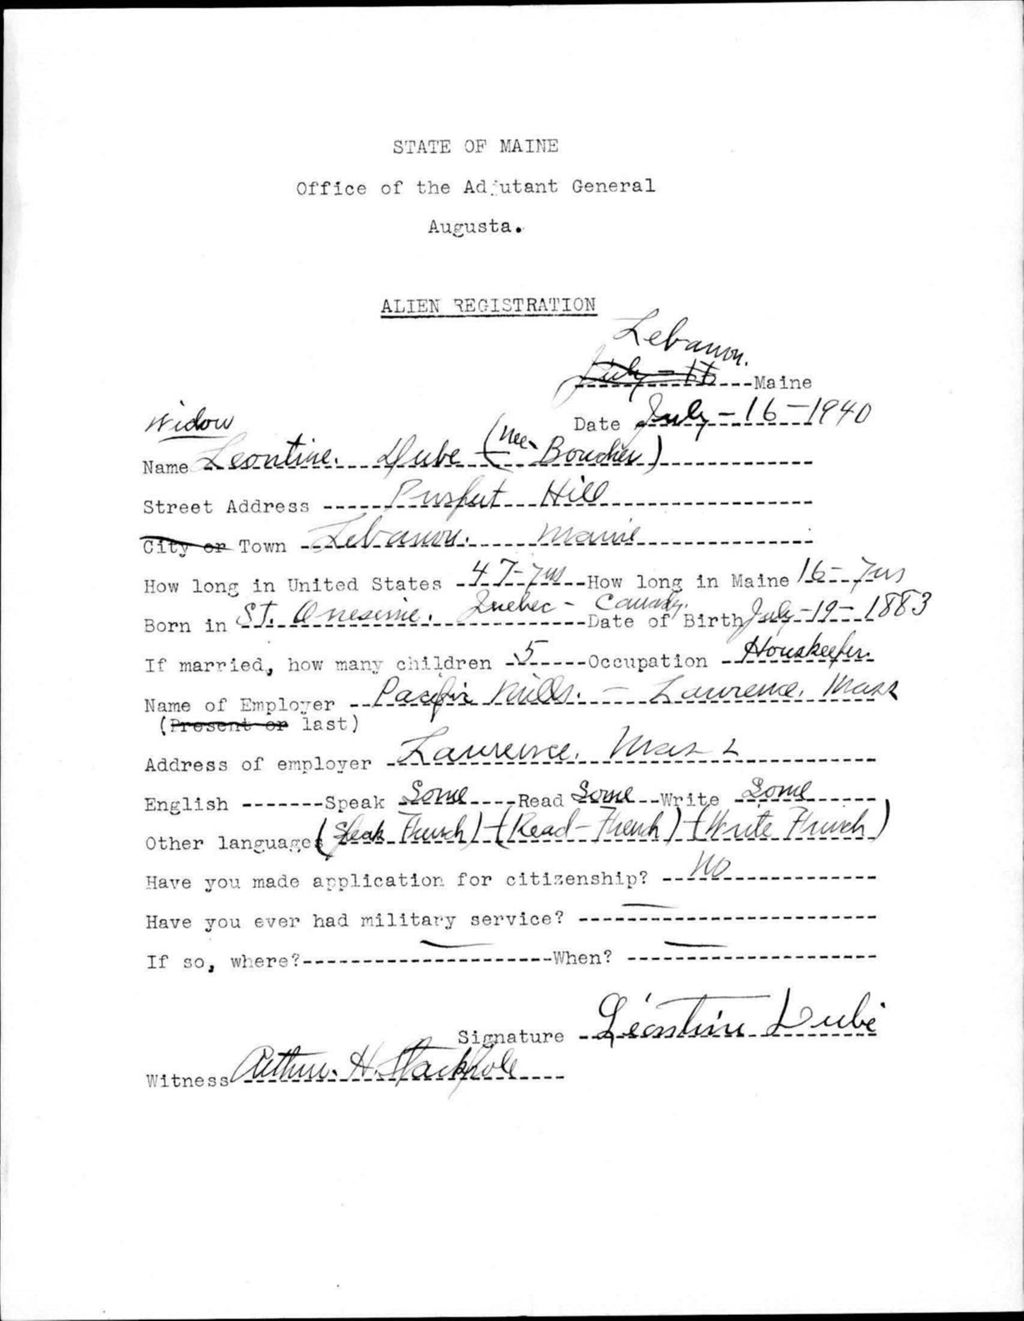 STATE OF MAINE
Office of the Adjutant General
Augusta.
ALIEN REGISTRATION
Lebanon.
July - 16 Maine
Widow
Date July - 16 - 1940
Name Leontine. Dube (nee Boucher)
Street Address Prospect Hill
City or Town Lebanon. Maine
How long in United States 47-yrs How long in Maine 16-yrs
Born in St. Onesime. Quebec - Canada. Date of Birth July-19-1883
If married, how many children 5 Occupation Houskeeper.
Name of Employer Pacific Mills. - Lawrence, Mass
(Present or last)
Address of employer Lawrence, Mass
English Speak Some Read Some Write Some
Other languages (Speak French) - (Read - French) - (Write French)
Have you made application for citizenship? No
Have you ever had military service? —
If so, where? — When? —
Signature Léontine Dubé
Witness Arthur. H. Stackpole